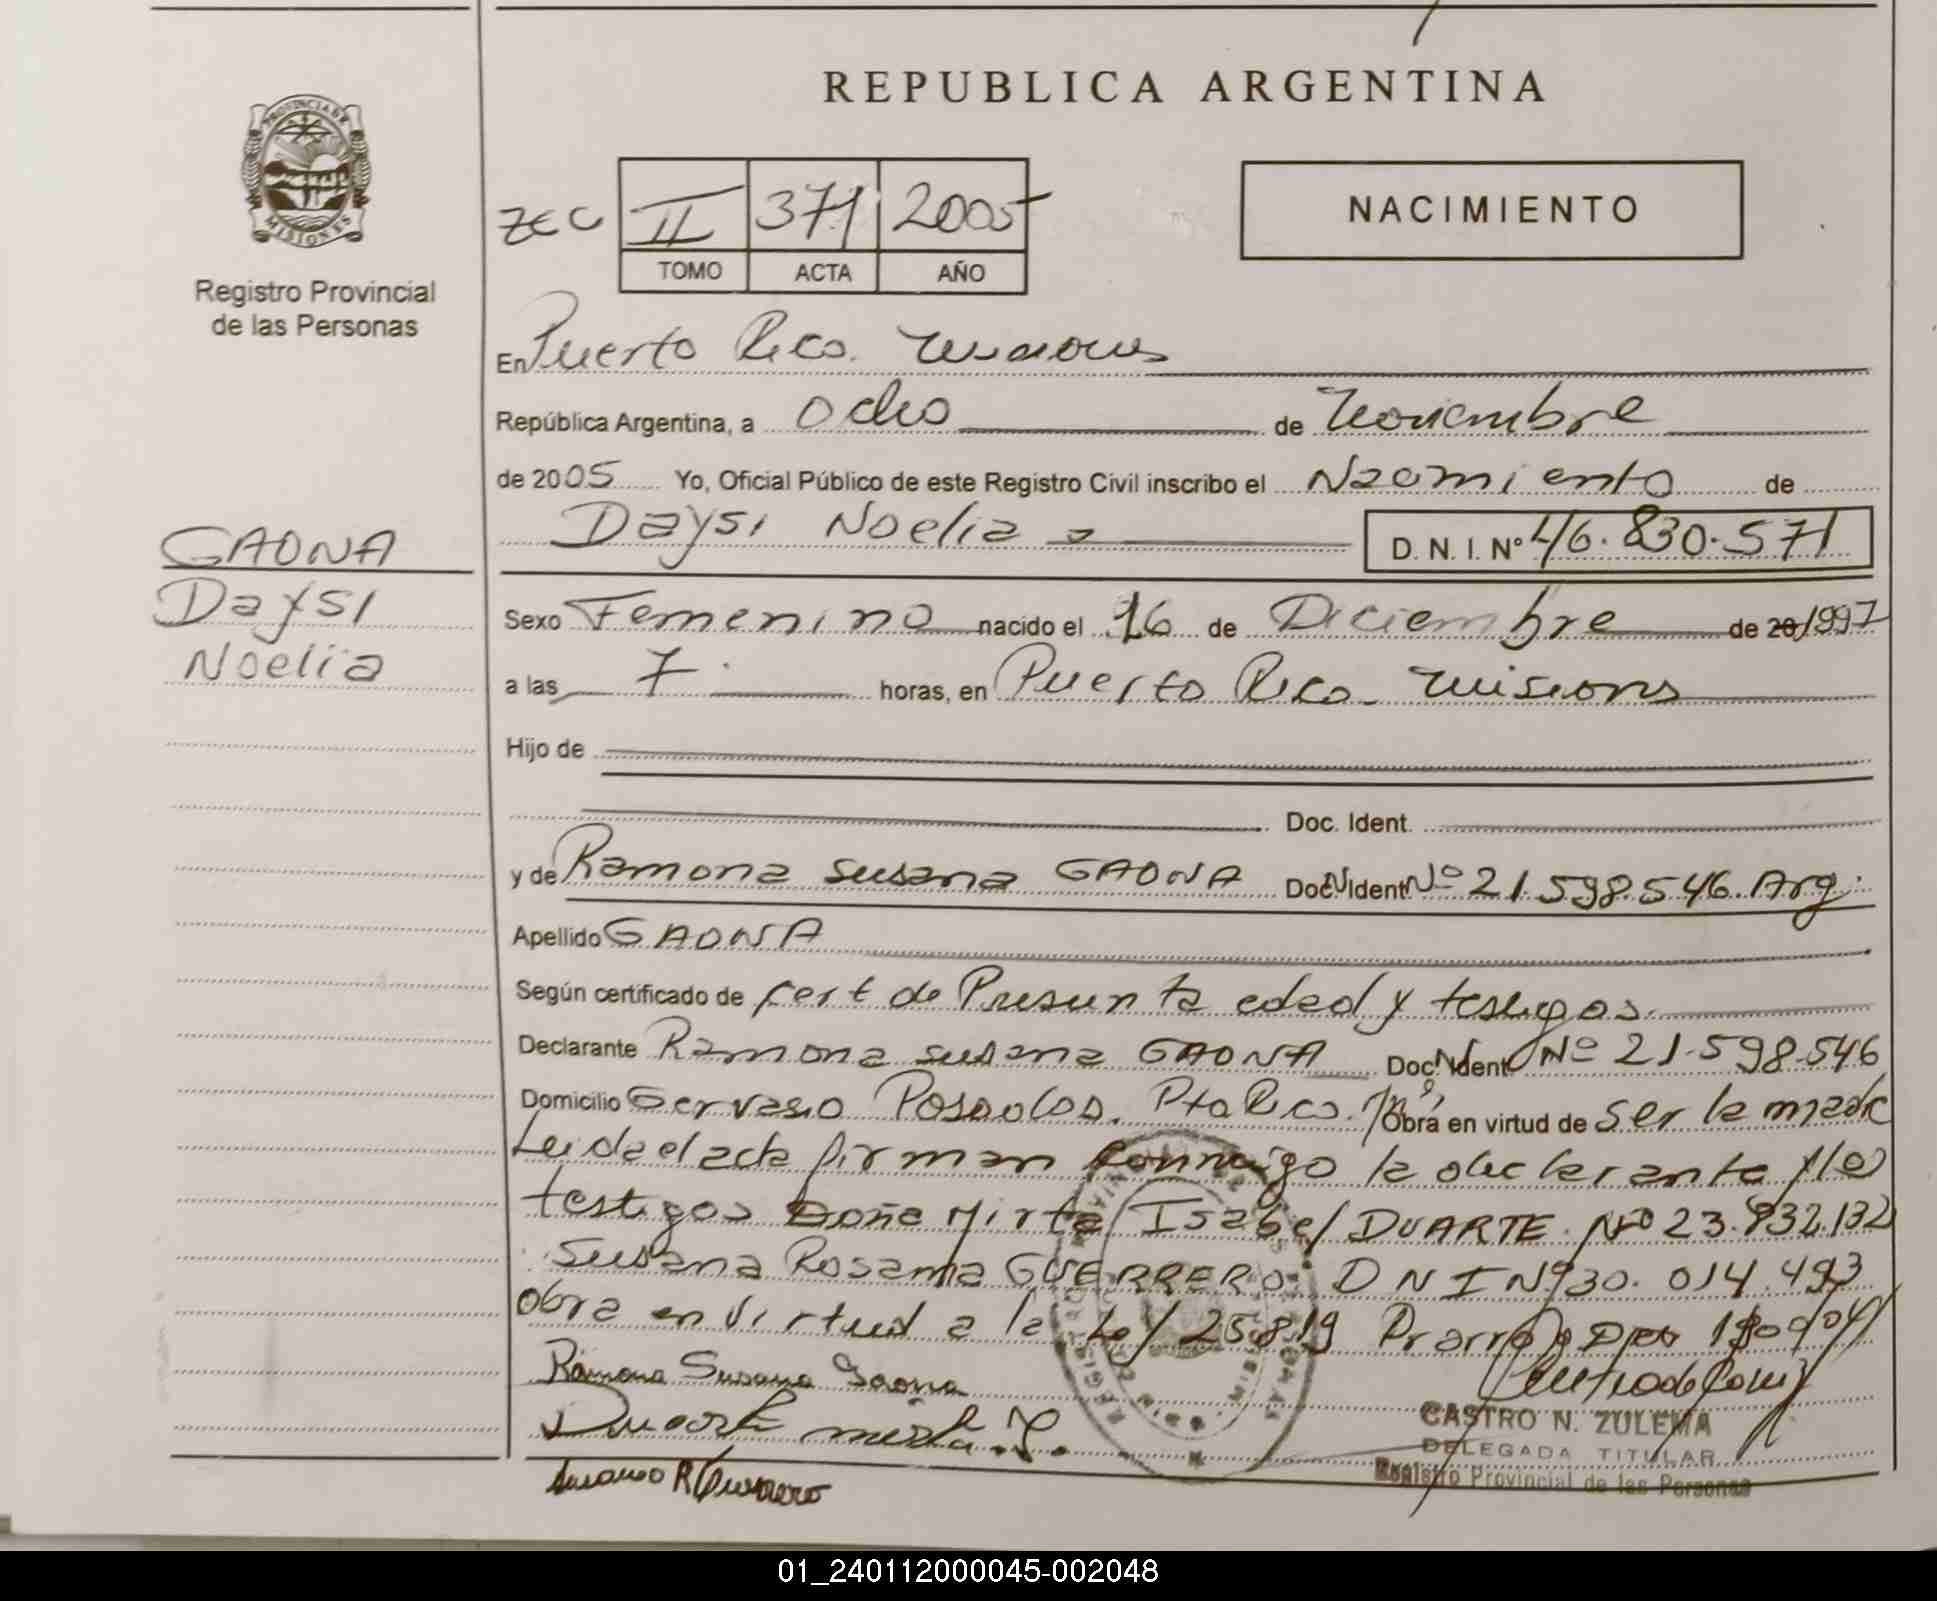 REPUBLICA ARGENTINA
PROVINCIA DE
MISIONES
Registro Provincial
de las Personas
II 371 2005
TOMO ACTA AÑO
NACIMIENTO
En Puerto Rico. Misiones
República Argentina, a Ocho de Noviembre
de 2005 Yo, Oficial Público de este Registro Civil inscribo el Nacimiento de
Daysi Noelia D. N. I. Nº 46.830.571
GAONA
Daysi
Noelia
Sexo Femenino nacido el 16 de Diciembre de 20/1997
a las 7. horas, en Puerto Rico. Misiones
Hijo de
Doc. Ident.
y de Ramona Susana GAONA Doc. Ident. Nº 21.598.546. Arg.
Apellido GAONA
Según certificado de Cert de Presunta edad y testigos.
Declarante Ramona Susana GAONA Doc. Ident. Nº 21.598.546
Domicilio Gervasio Posadas. Pto Rico. Obra en virtud de Ser la madre
Leida el acta firman conmigo la declarante y los
testigos Doña Mirta Isabel DUARTE Nº 23.832.132
Susana Rosana GUERRERO. DNI Nº 30.014.493
obra en virtud a la Ley 25.819
Ramona Susana Gaona
Duarte Mirta I.
Susana R Guerrero
CASTRO N. ZULEMA
DELEGADA TITULAR
Registro Provincial de las Personas
01_240112000045-002048